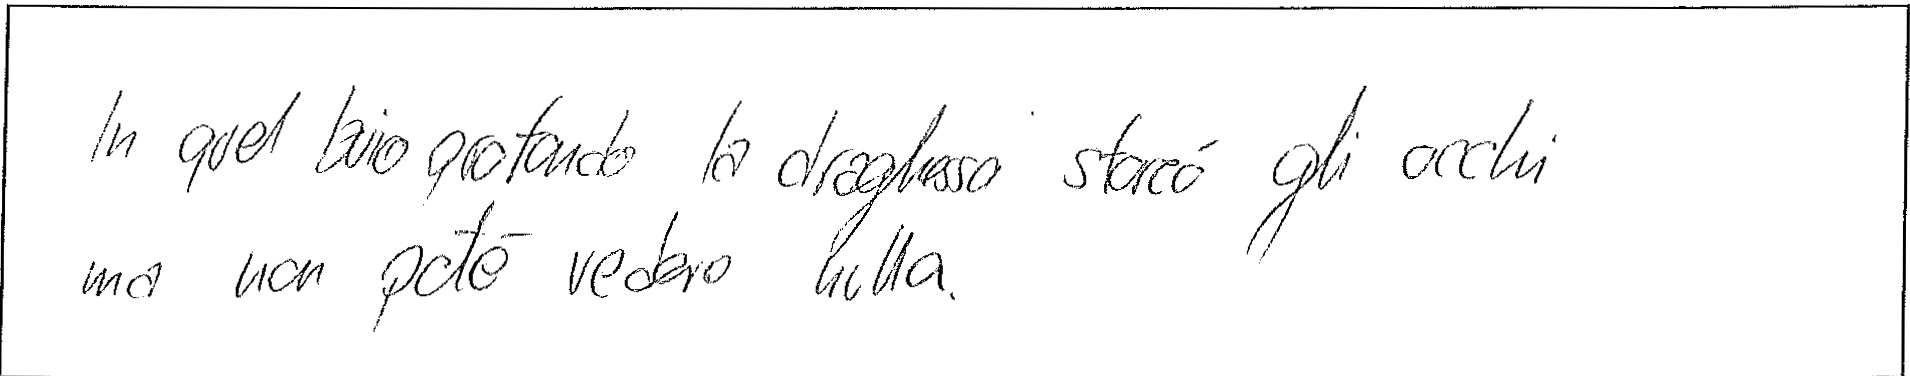 In quel buio profondo la draghessa staccò gli occhi
ma non poté vedere nulla.